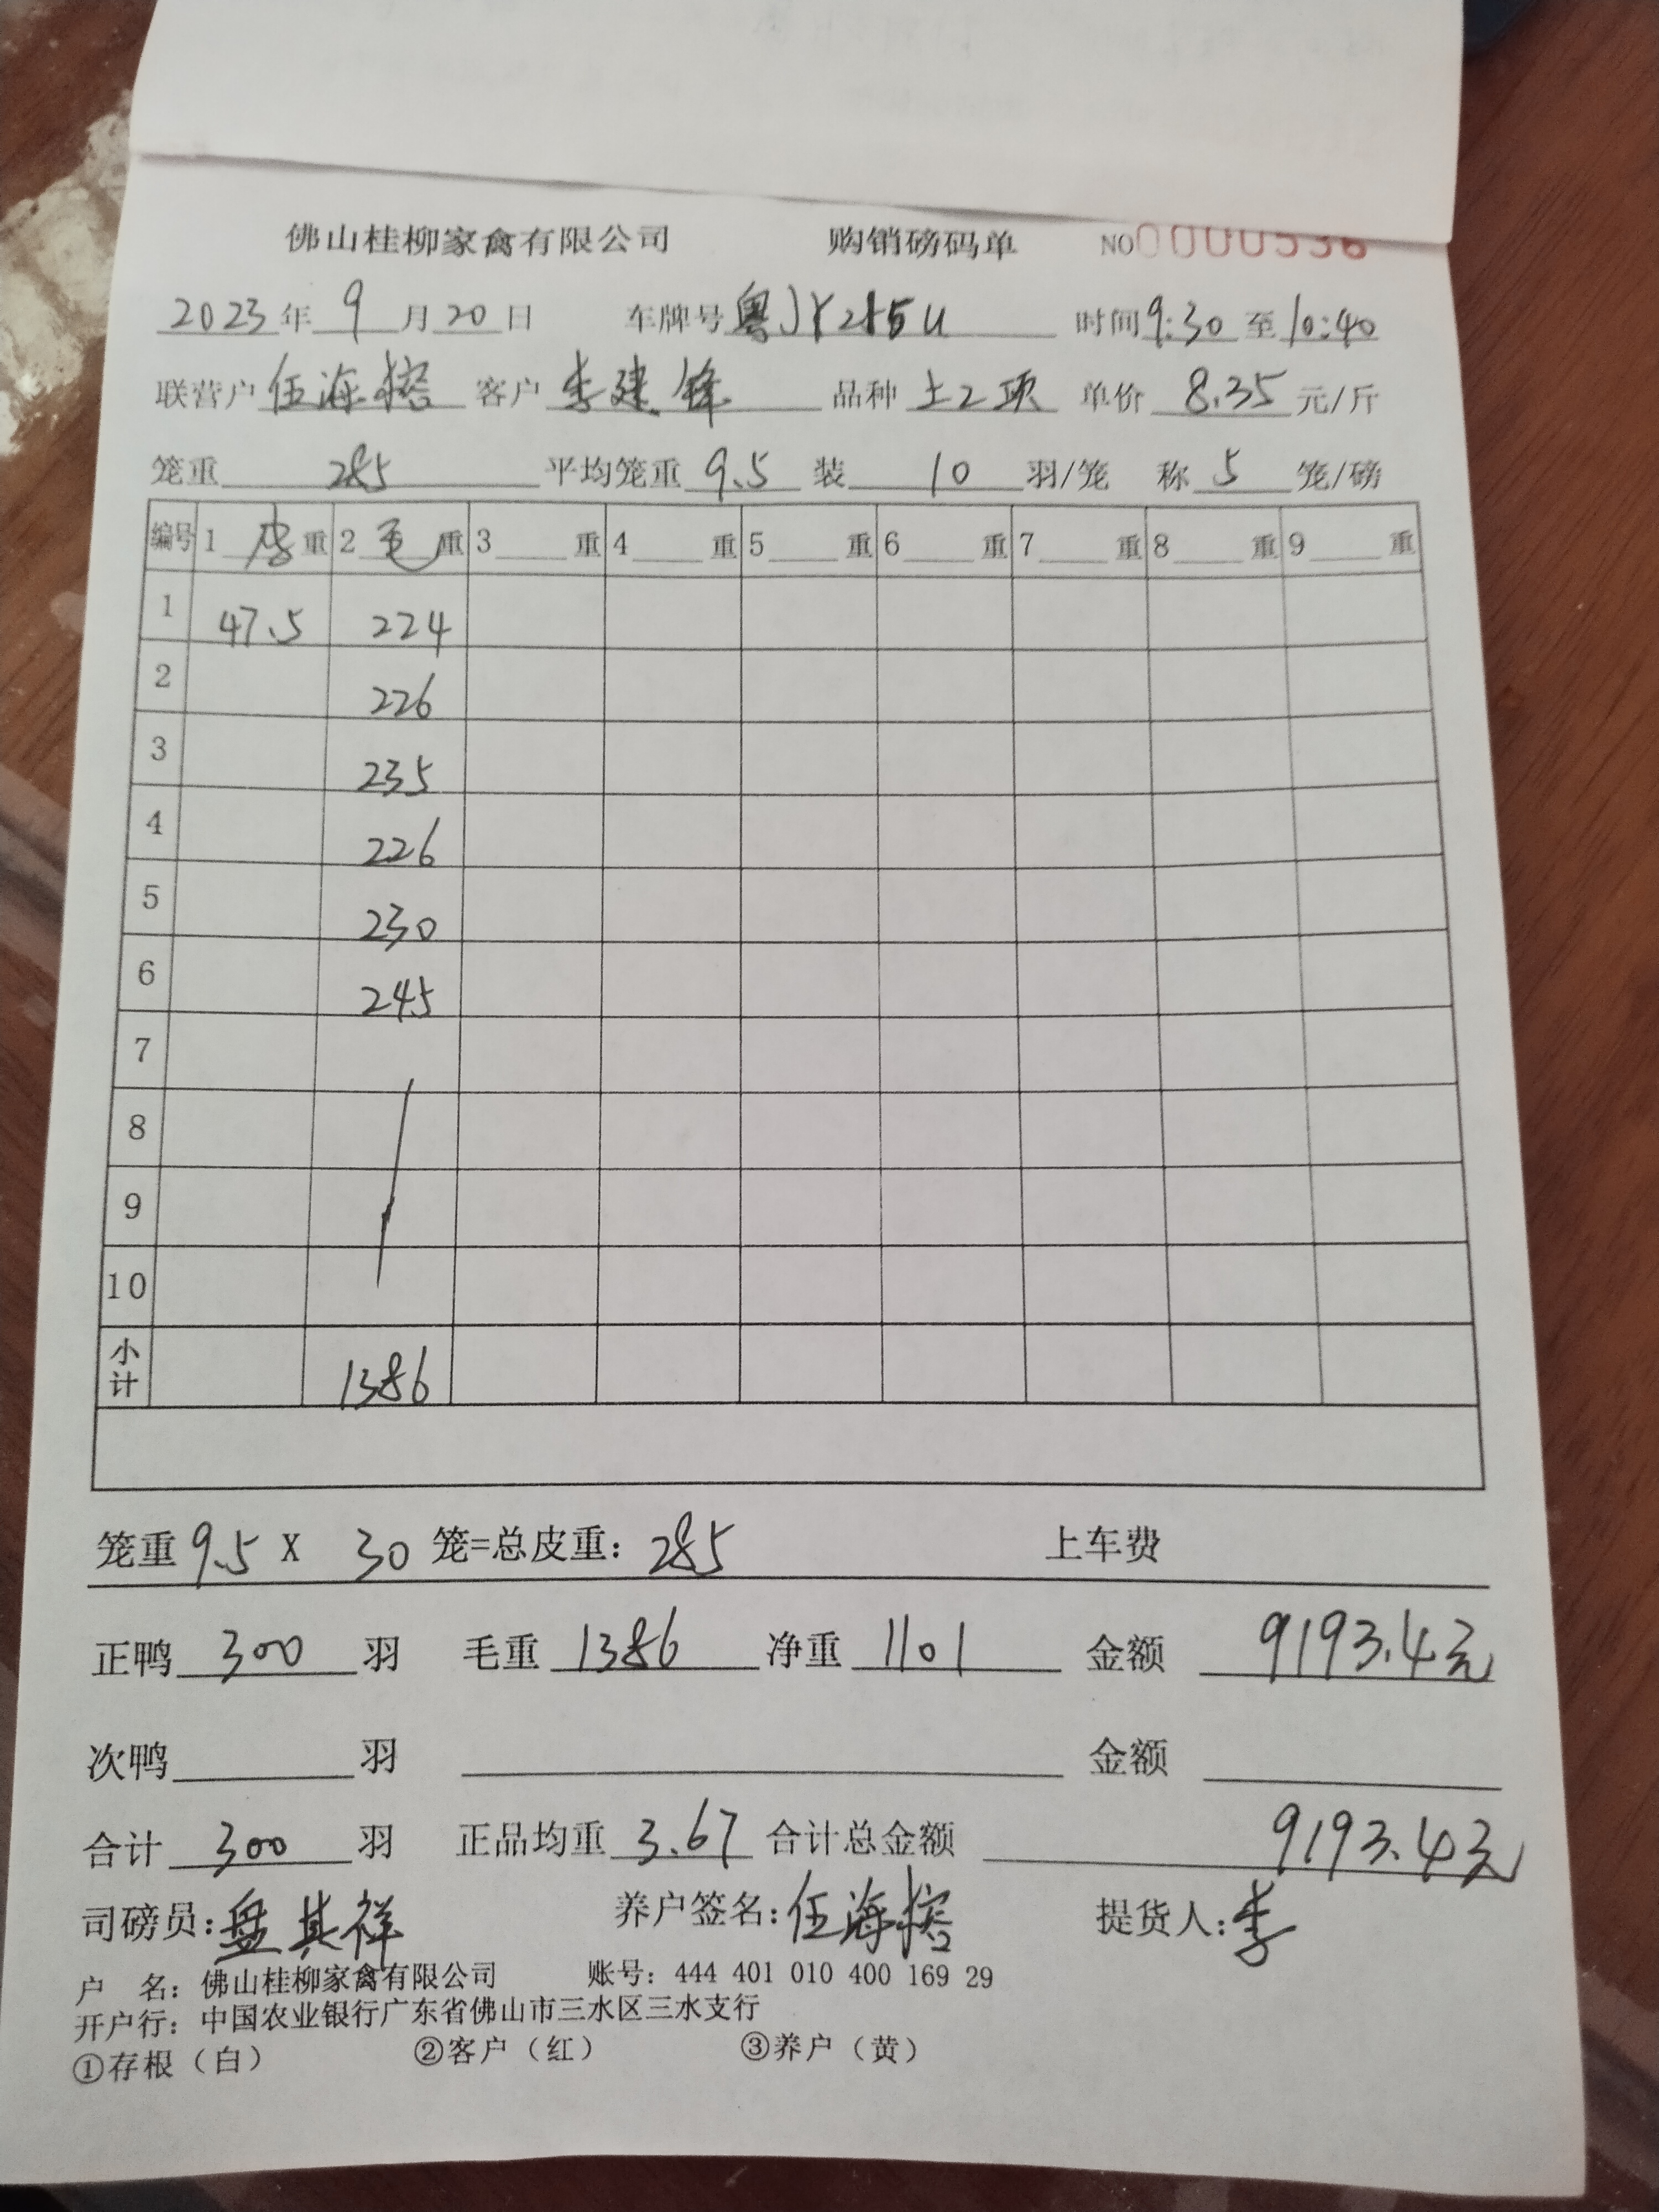 佛山桂柳家禽有限公司 购销磅码单 NO0000536
2023年9月20日 车牌号 粤JY215U 时间9:30至10:40
联营户 伍海榕 客户 李建锋 品种 土2项 单价 8.35 元/斤
笼重 285 平均笼重 9.5 装 10 羽/笼 称 5 笼/磅
编号 1 皮 重 2 毛 重 3 重 4 重 5 重 6 重 7 重 8 重 9 重
1 47.5 224
2 226
3 235
4 226
5 230
6 245
7
8
9
10
小计 1386
笼重 9.5 X 30 笼=总皮重: 285 上车费
正鸭 300 羽 毛重 1386 净重 1101 金额 9193.4元
次鸭 羽 金额
合计 300 羽 正品均重 3.67 合计总金额 9193.4元
司磅员: 盘其祥 养户签名: 伍海榕 提货人: 李
户 名: 佛山桂柳家禽有限公司 账号: 444 401 010 400 169 29
开户行: 中国农业银行广东省佛山市三水区三水支行
①存根（白） ②客户（红） ③养户（黄）